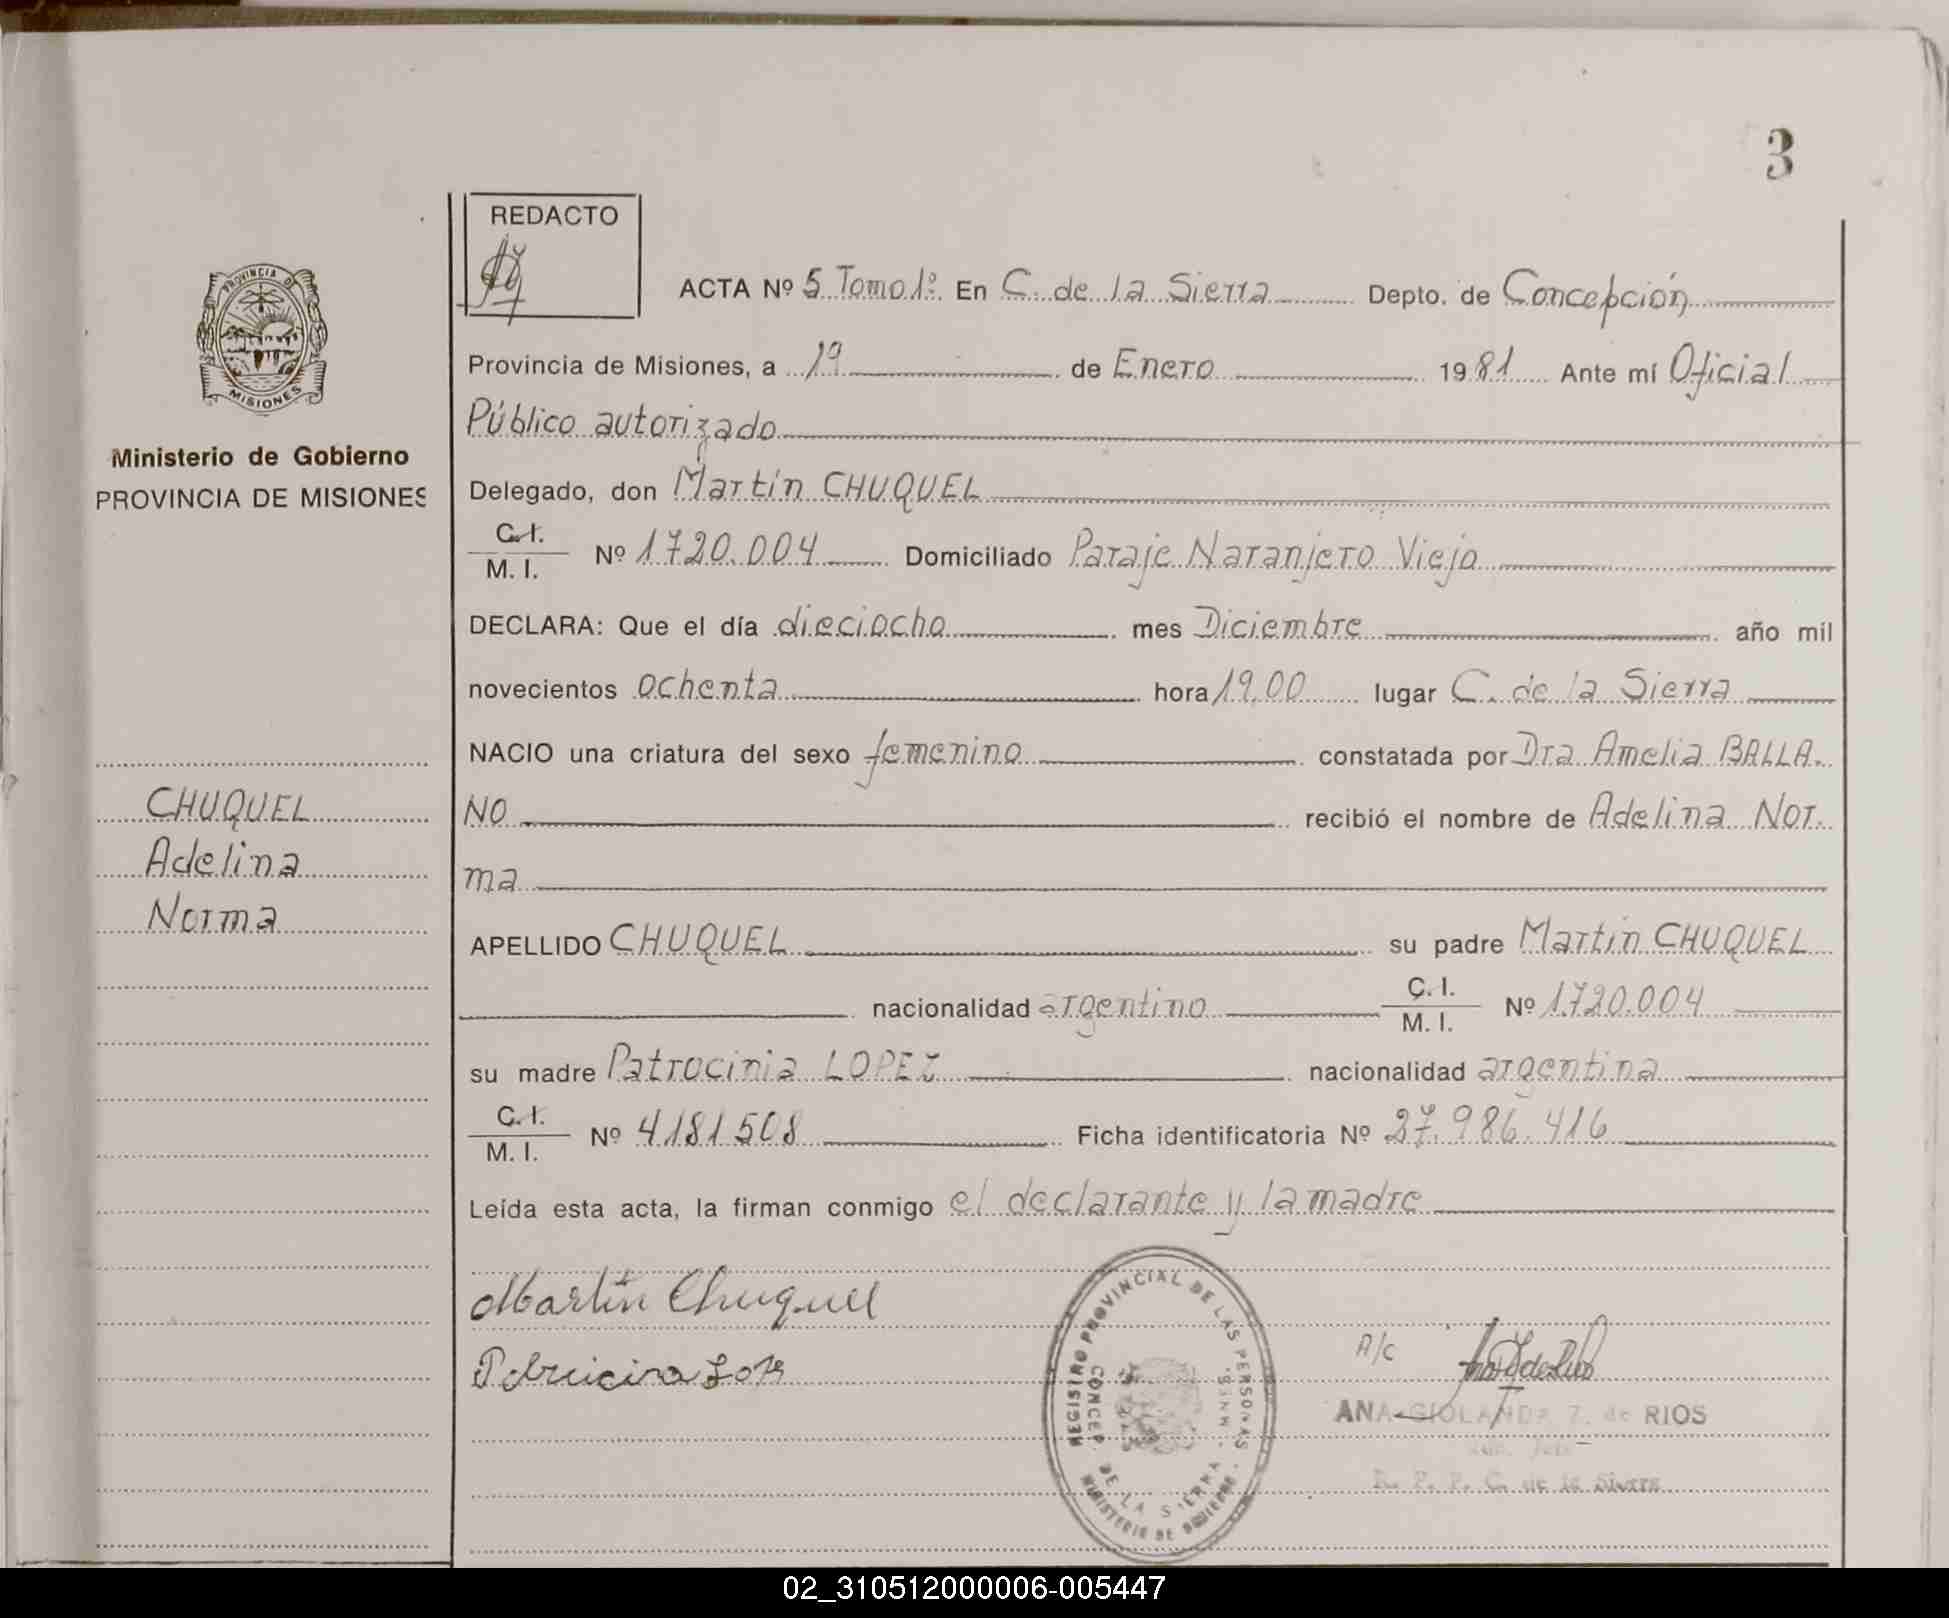 3
REDACTO
ACTA Nº 5 Tomo 1º En C. de la Sierra Depto. de Concepción
PROVINCIA DE
MISIONES
Provincia de Misiones, a 19 de Enero 1981 Ante mí Oficial
Público autorizado
Ministerio de Gobierno
PROVINCIA DE MISIONES
Delegado, don Martín CHUQUEL
C.I.
M. I. Nº 1.720.004 Domiciliado Paraje Naranjero Viejo
DECLARA: Que el día dieciocho mes Diciembre año mil
novecientos ochenta hora 19,00 lugar C. de la Sierra
NACIO una criatura del sexo femenino constatada por Dra Amelia BALLA-
NO recibió el nombre de Adelina Nor-
ma
CHUQUEL
Adelina
Norma
APELLIDO CHUQUEL su padre Martín CHUQUEL
nacionalidad argentino C.I.
M. I. Nº 1.720.004
su madre Patrocinia LOPEZ nacionalidad argentina
C.I.
M. I. Nº 4.181.508 Ficha identificatoria Nº 27.986.416
Leída esta acta, la firman conmigo el declarante y la madre
Martín Chuquel
REGISTRO PROVINCIAL DE LAS PERSONAS
CONCEP. DE LA SIERRA - MNES.
MINISTERIO DE GOBIERNO
A/c
ANA de RIOS
R. P. P. C. de la Sierra
02_310512000006-005447